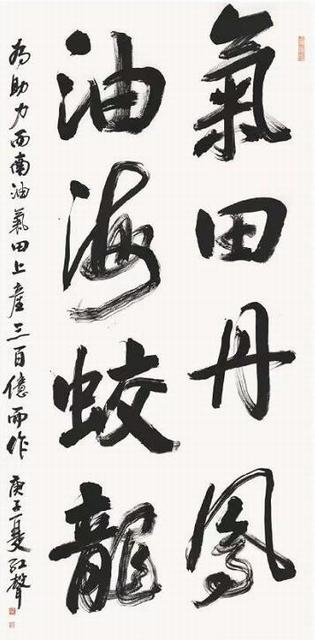 氣田丹鳳
油海蛟龍
為助力西南油氣田上產三百億而作
庚子夏紅聲